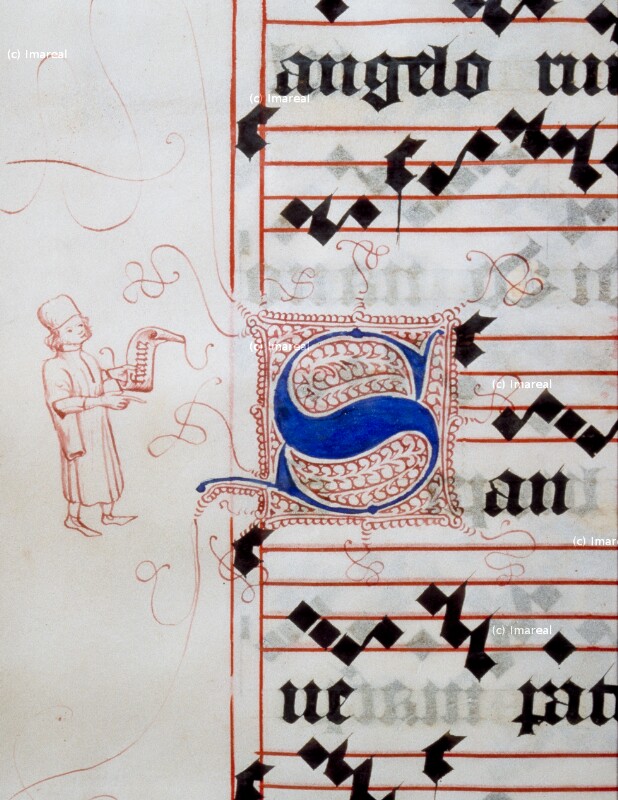 (c) Imareal
(c) Imareal
angelo
(c) Imareal
(c) Imareal
San
(c) Imar
(c) Imareal
ue pat